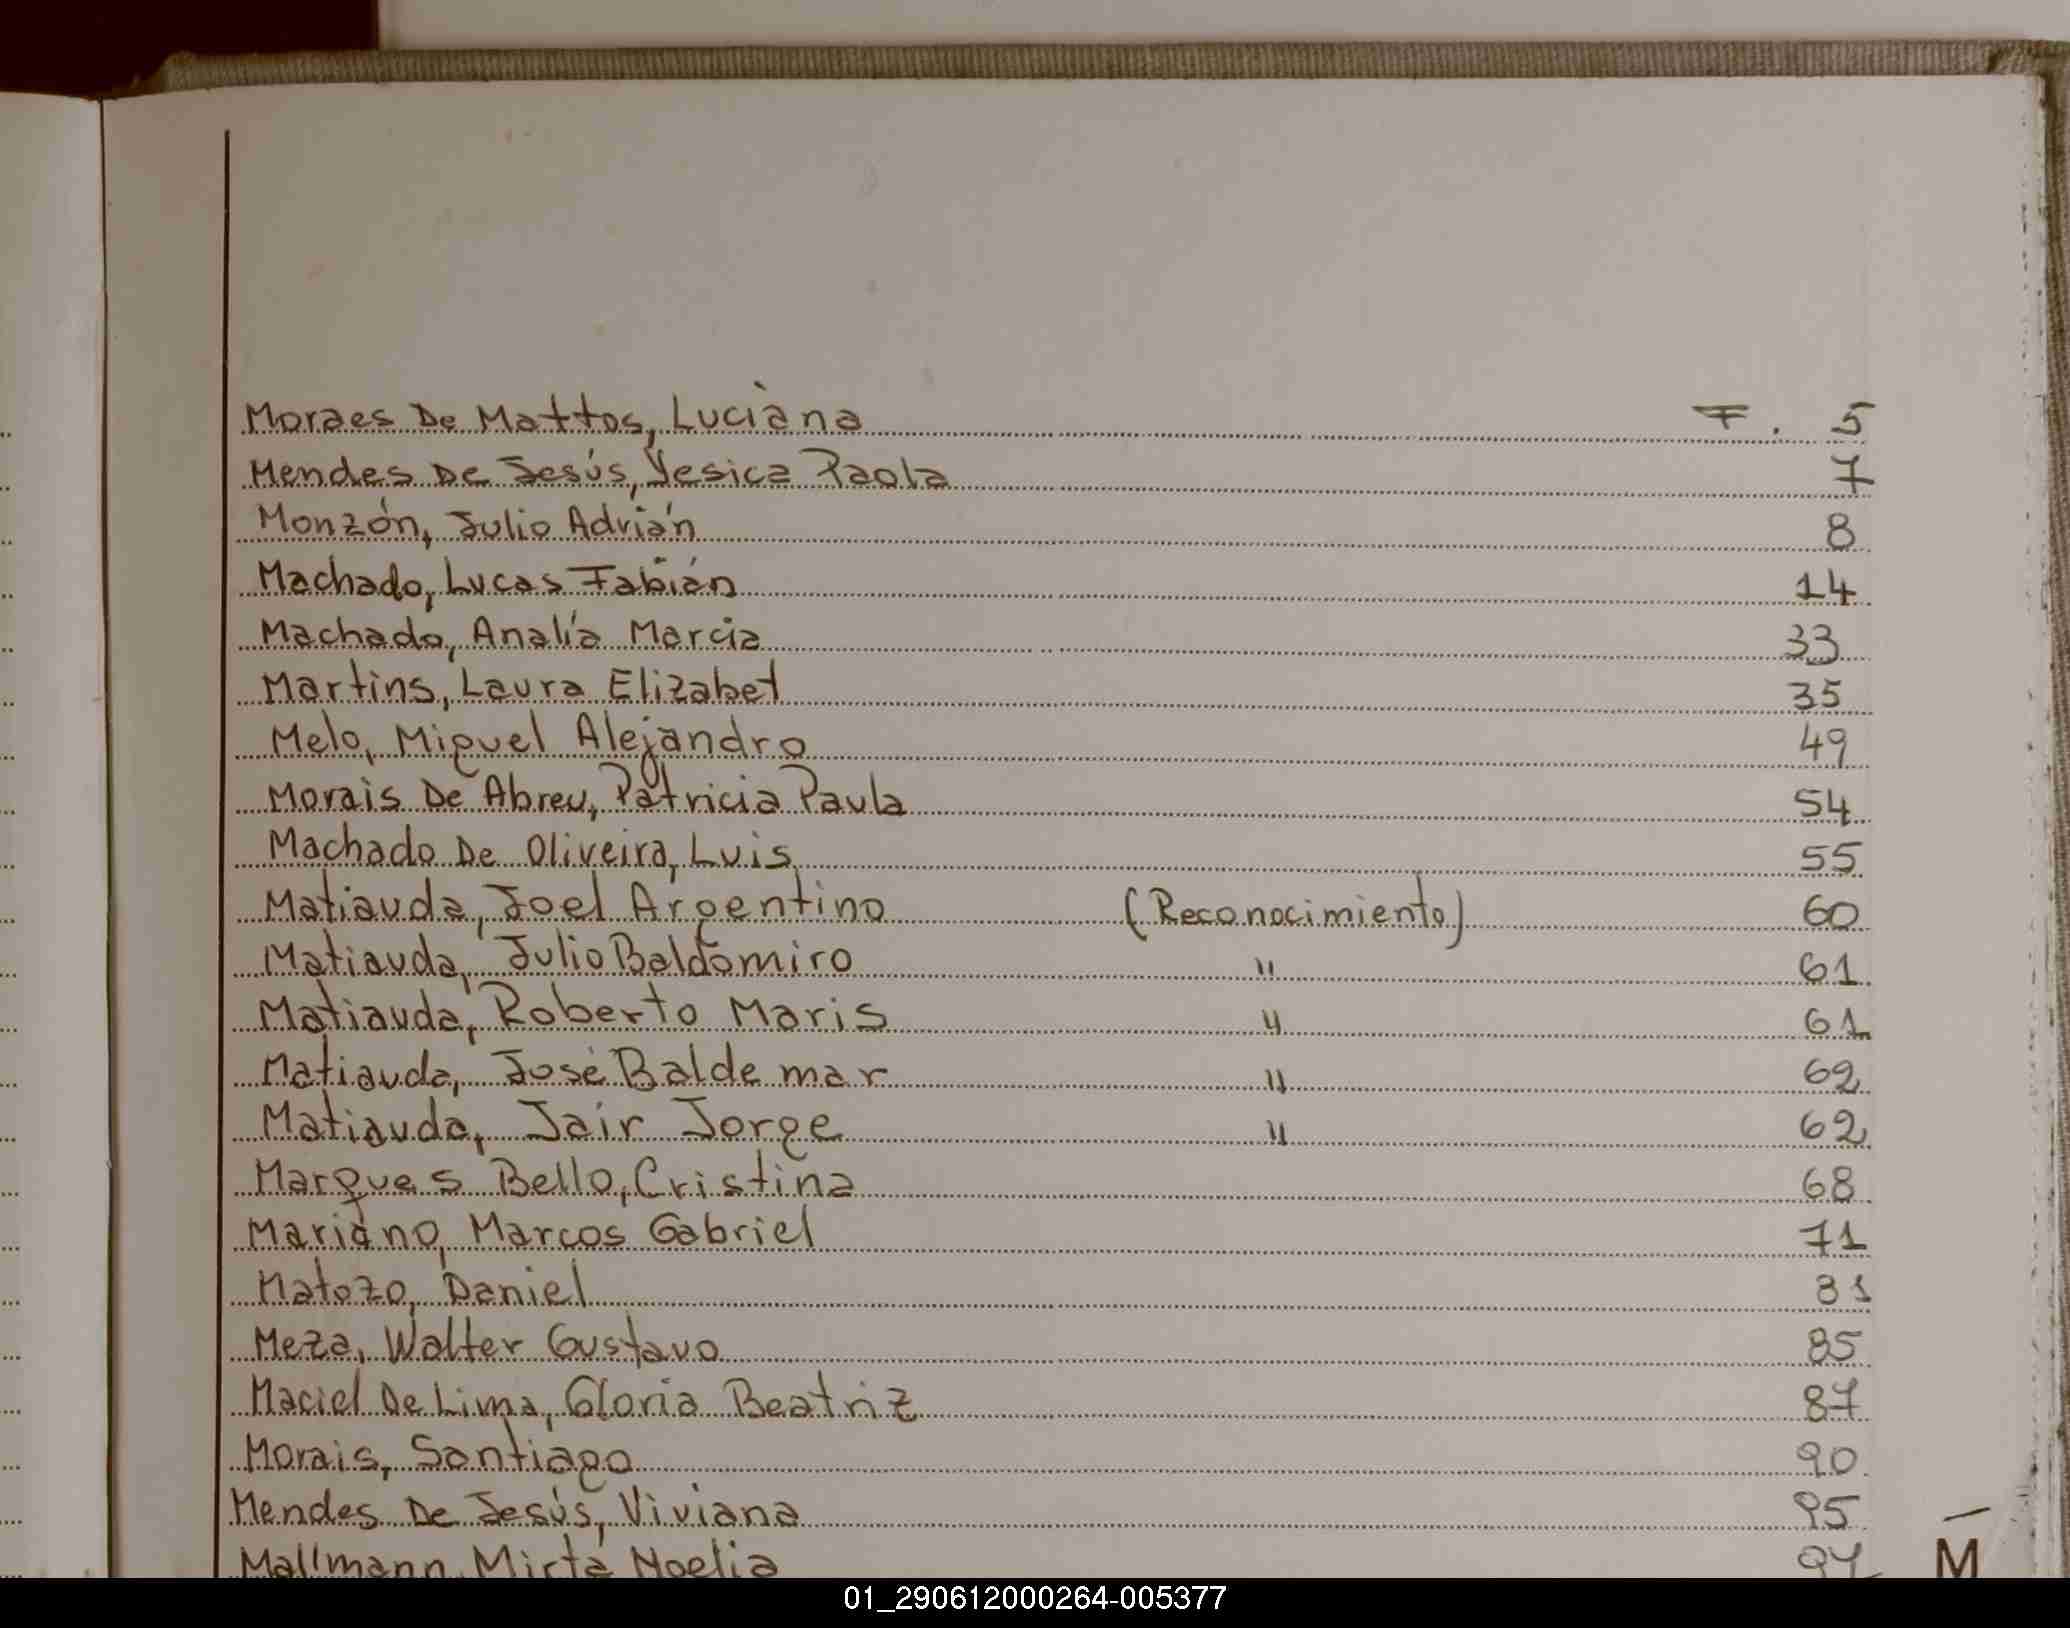 Moraes De Mattos, Luciana F. 5
Mendes De Jesús, Yesica Paola 7
Monzón, Julio Adrián 8
Machado, Lucas Fabián 14
Machado, Analía Marcia 33
Martins, Laura Elizabet 35
Melo, Miguel Alejandro 49
Morais De Abreu, Patricia Paula 54
Machado De Oliveira, Luis 55
Matiauda, Joel Argentino (Reconocimiento) 60
Matiauda, Julio Baldomiro " 61
Matiauda, Roberto Maris " 61
Matiauda, José Baldemar " 62
Matiauda, Jair Jorge " 62
Marques Bello, Cristina 68
Mariano, Marcos Gabriel 71
Matozo, Daniel 81
Meza, Walter Gustavo 85
Maciel De Lima, Gloria Beatriz 87
Morais, Santiago 90
Mendes De Jesús, Viviana 95
Mallmann, Mirta Noelia
M
01_290612000264-005377